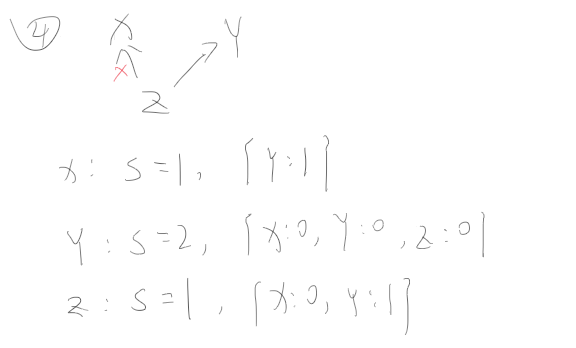 ④ X Y
x
Z
X: S=1, [Y:1]
Y: S=2, [X:0, Y:0, Z:0]
Z: S=1, [X:0, Y:1]